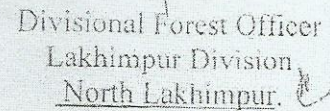 Divisional Forest Officer
Lakhimpur Division
North Lakhimpur.